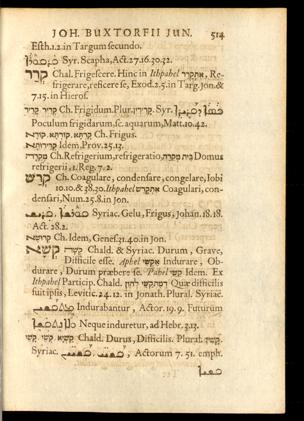 JOH. BUXTORFII JUN. 514
Esth. 1.2. in Targum secundo.
Syr. Scapha, Act. 27.16.30.32.
קרר Chal. Frigescere. Hinc in Ithpahel אתקריר, Re-
frigerare, reficere se, Exod. 2.5. in Targ. Jon. &
7.15. in Hieros.
Ch. Frigidum. Plur. קרירין Syr.
Poculum frigidarum, sc. aquarum, Matt. 10.42.
Ch. Frigus.
Idem, Prov. 25.13.
Ch. Refrigerium, refrigeratio, Domus
refrigerii, 1. Reg. 7.2.
קרש Ch. Coagulare, condensare, congelare, Iobi
10.10. & 38.30. Ithpahel Coagulari, con-
densari, Num. 25.8. in Jon.
Syriac. Gelu, Frigus, Johan. 18.18.
Act. 28.2.
Ch. Idem, Genes. 31.40. in Jon.
קשא Chald. & Syriac. Durum, Grave,
Difficile esse. Aphel אקשי Indurare, Ob-
durare, Durum præbere se. Pahel קשי Idem. Ex
Ithpahel Particip. Chald. Quæ difficilis
fuit ipsis, Levitic. 24.12. in Jonath. Plural. Syriac.
Indurabantur, Actor. 19.9. Futurum
Neque induretur, ad Hebr. 3.13.
Chald. Durus, Difficilis. Plural.
Syriac. Actorum 7. 51. emph.